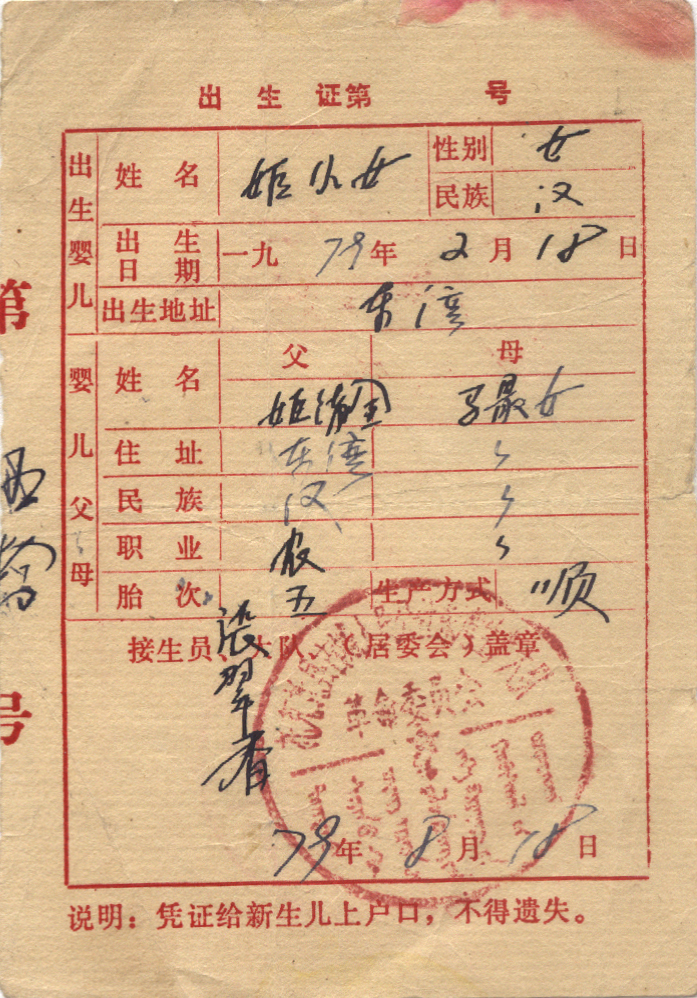 出生证第 号
出生婴儿
姓名 姬小女 性别 女
民族 汉
出生日期 一九79年2月18日
出生地址 东湾
婴儿父母
父 母
姓名 姬 全 最女
住址 东湾 〃
民族 汉 〃
职业 农 〃
胎次 五 生产方式 顺
接生员、大队、(居委会)盖章
张翠香
革命委员会
79年8月18日
说明：凭证给新生儿上户口，不得遗失。
第
号